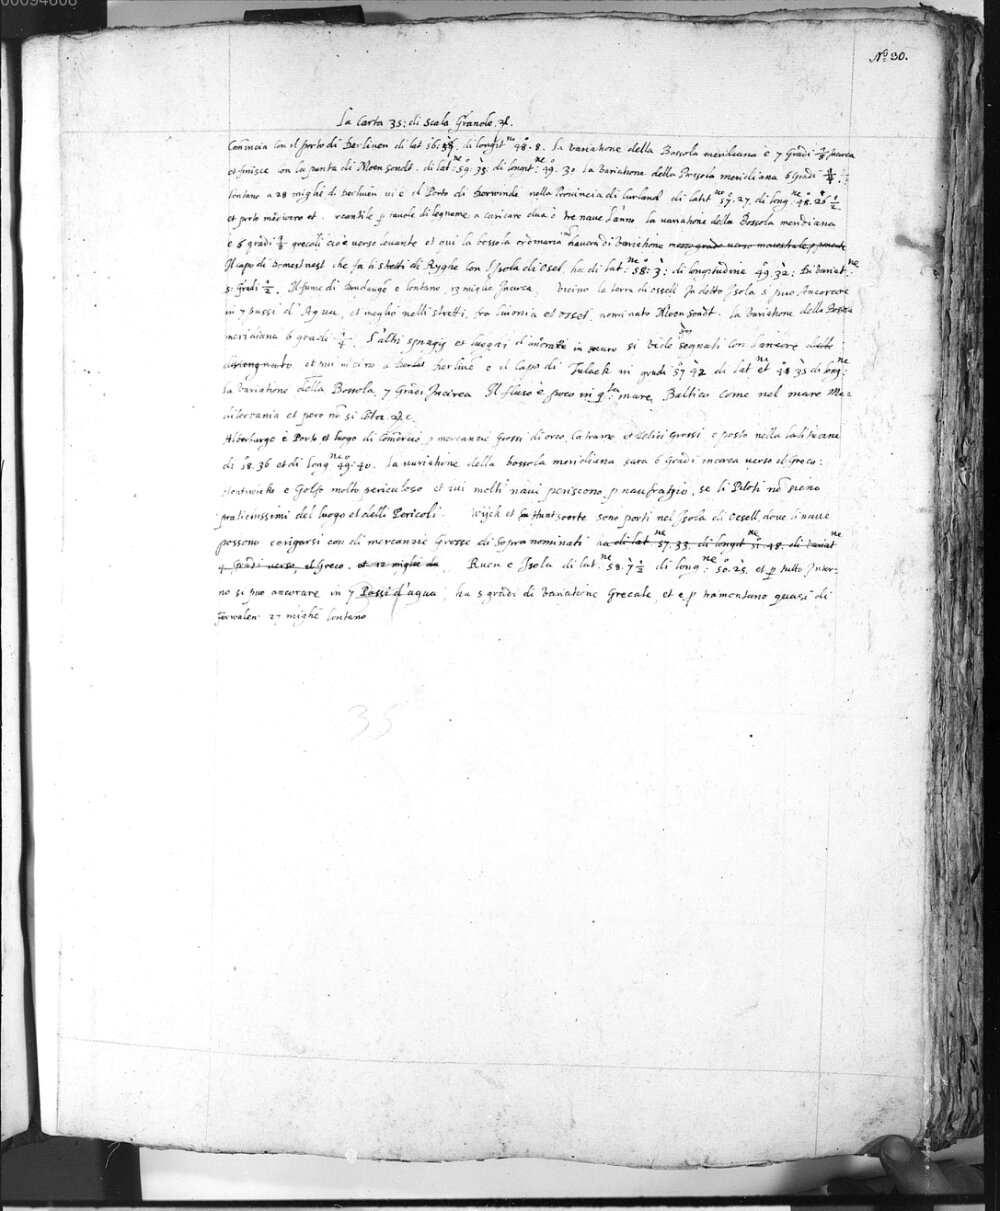 00094608
Nº 30.
La Carta 35: di Scala Grande.
Comincia con il porto di Derlinen di lat 56. 58. di longit.ne 48. 8. La variatione della Bossola meridiana è 7 Gradi incirca
et finisce con la punta di Moensondt. di lat.ne 59. 35. di longit.ne 49. 30 La Variatione della Bossola meridiana 6 Gradi
lontano a 28 miglie di Derluin vi e il Porto di Derwinde nella Provincia di Curland di latit.ne 57. 27. di long.ne 48. 26 1/2
et porto mediocro et tavole di legname a caricare dua ò tre nave l'anno la variatione della Bossola meridiana
è 6 gradi grecoli cioè verso levante et qui la bossola ordinaria haverà di Variatione mezzo grado verso maestrale
Il capo di Domesnest che fa li stretti di Ryghe con l'Isola di Osel ha di lat.ne 58: 3: di longitudine 49. 32: Di Variat.ne
5: Gradi 1/2. Il fiume di e lontano 13 miglie Incirca, Vicino la terra di ossell In detto Isola si puo Ancorare
in 7 passi d'Aqua, et meglio nelli stretti fra Livonia et Ossel nominato Moensondt. La Variatione della Bossola
meridiana 6 gradi L'altri spragij et luogai d'ancorare in si vede segnati con l'ancore
dissengnato et piu vicino a Derliné e il Capo di Tulack in gradi 57 42 di lat.ne et 48 35 di long.ne
La Variatione della Bossola, 7 Gradi Incirca Il flusso è poco in q.sto mare Baltico come nel mare Me-
diterrania et pero nõ si
Alberburgo è Porto et luogo di Comercio p mercanzie Grossi di Grossi e posto nella latitudine
di 58. 36 et di Long.ne 49: 40. La variatione della bossola meridiana sara 6 Gradi incirca verso il Greco:
e Golfo molto pericoloso et ivi molti navi periscono p naufragio, se li Piloti nõ sieno
praticissimi del luogo et delli Pericoli. Wijck et Huntsoorte sono porti nel Isola di Ocsell, dove li nave
possono di mercanzie Grosse di Sopra nominati ha di lat.ne 57. 33. di longit.ne 48. di Variat.ne
4 Gradi verso il Greco. et 12 miglie da Ruen e Isola di lat.ne 58. 7 1/2 di long.ne 50. 25. et p tutto Intor-
no si puo ancorare in 7 Passi d'aqua, ha 5 gradi di Variatione Grecale, et e p tramontano quasi di
27 miglie lontano
35